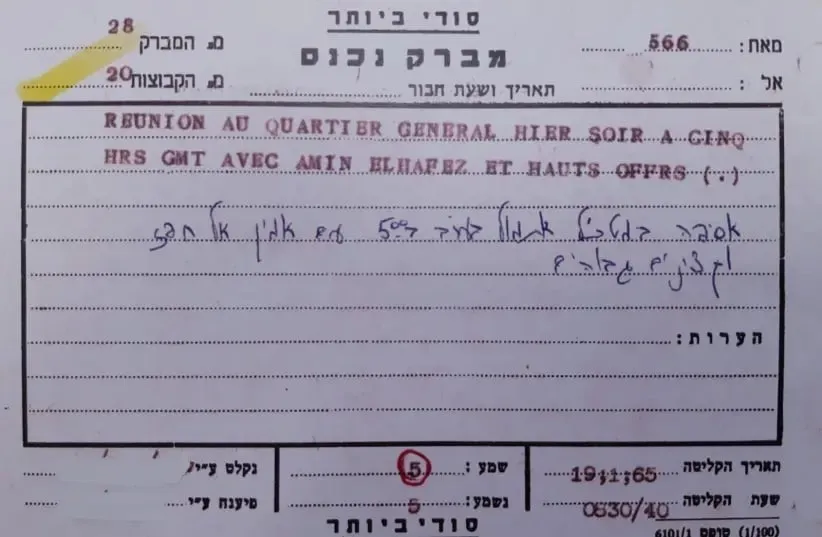 סודי ביותר
מברק נכנס
מאת: 566
מס המברק 28
אל:
תאריך ושעת חבור
מס הקבוצות 20
REUNION AU QUARTIER GENERAL HIER SOIR A CINQ
HRS GMT AVEC AMIN ELHAFEZ ET HAUTS OFFRS (.)
אסיפה במטכ"ל אתמול בערב ב 5⁰⁰ עם אמין אל חפז
וקצינים גבוהים
הערות:
תאריך הקליטה 19;1;65
שמע: 5
נקלט ע"י
שעת הקליטה 0830/40
נשמע: 5
פיענח ע"י
סודי ביותר
6101/1 טופס (1/100)